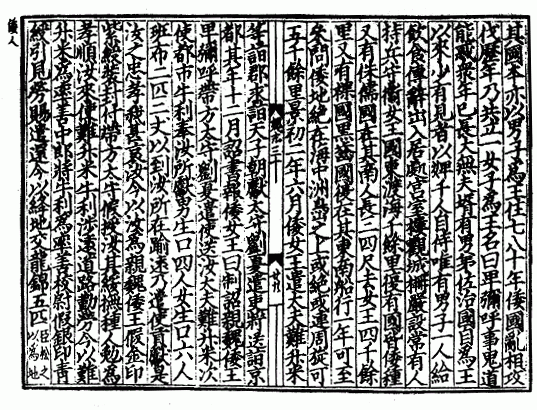 其國本亦以男子為王住七八十年倭國亂相攻
伐歷年乃共立一女子為王名曰卑彌呼事鬼道
能惑衆年已長大無夫壻有男弟佐治國自為王
以來少有見者以婢千人自侍唯有男子一人給
飲食傳辭出入居處宮室樓觀城柵嚴設常有人
持兵守衛女王國東渡海千餘里復有國皆倭種
又有侏儒國在其南人長三四尺去女王四千餘
里又有裸國黑齒國復在其東南船行一年可至
參問倭地絕在海中洲島之上或絕或連周旋可
五千餘里景初二年六月倭女王遣大夫難升米
等詣郡求詣天子朝獻太守劉夏遣吏將送詣京
都其年十二月詔書報倭女王曰制詔親魏倭王
卑彌呼帶方太守劉夏遣使送汝大夫難升米次
使都市牛利奉汝所獻男生口四人女生口六人
班布二匹二丈以到汝所在踰遠乃遣使貢獻是
汝之忠孝我甚哀汝今以汝為親魏倭王假金印
紫綬裝封付帶方太守假授汝其綏撫種人勉為
孝順汝來使難升米牛利涉遠道路勤勞今以難
升米為率善中郎將牛利為率善校尉假銀印青
綬引見勞賜遣還今以絳地交龍錦五匹
臣松之
以為地
倭人